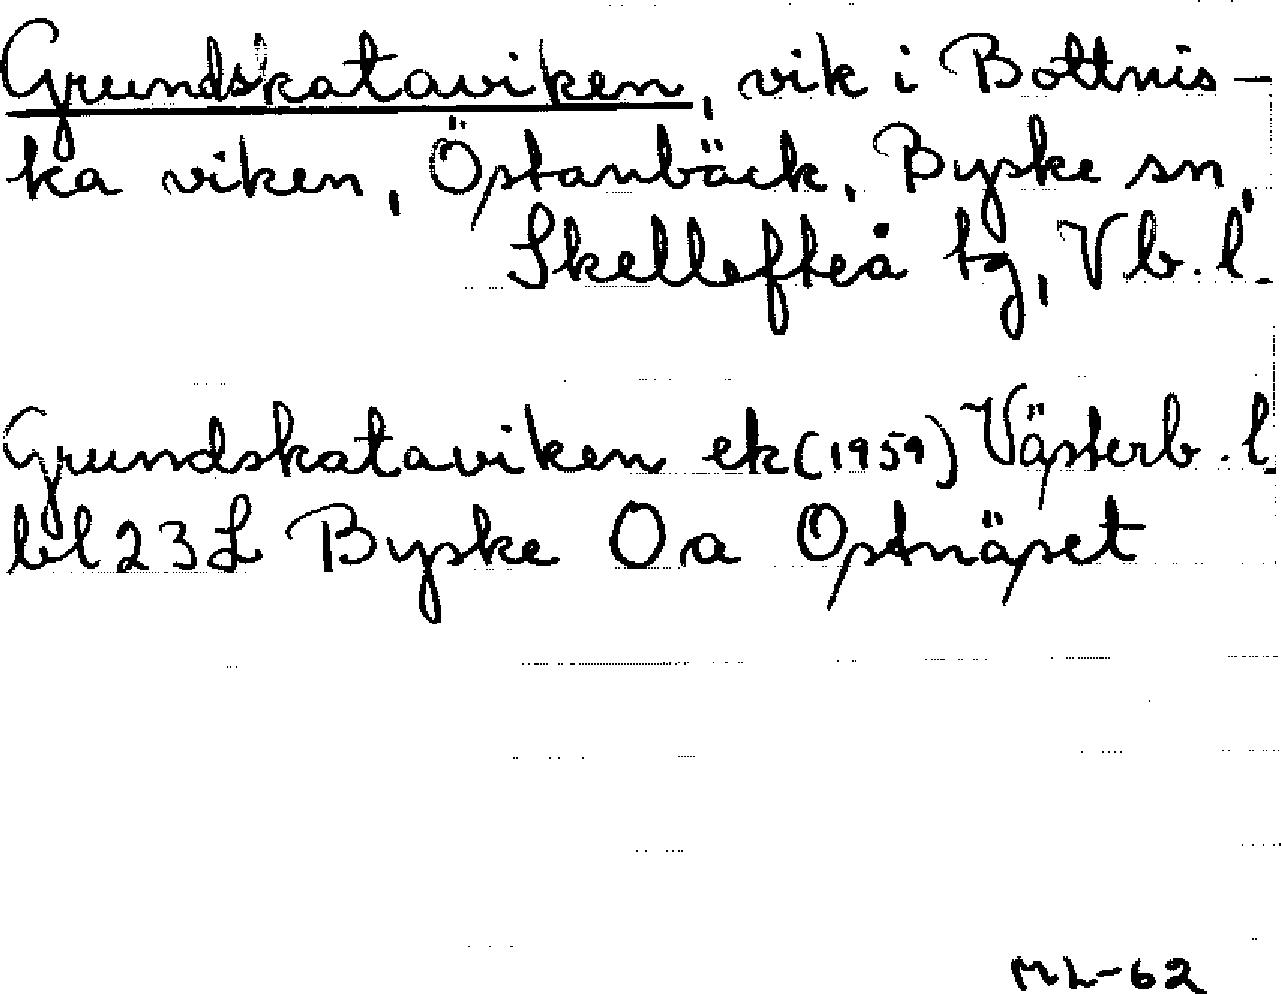 Grundskataviken, vik i Bottnis-
ka viken, Östanbäck, Byske sn,
Skellefteå tg, Vb. l.
Grundskataviken ek (1959) Västerb. l.
bl 23 L Byske O a Ostnäset
ML-62